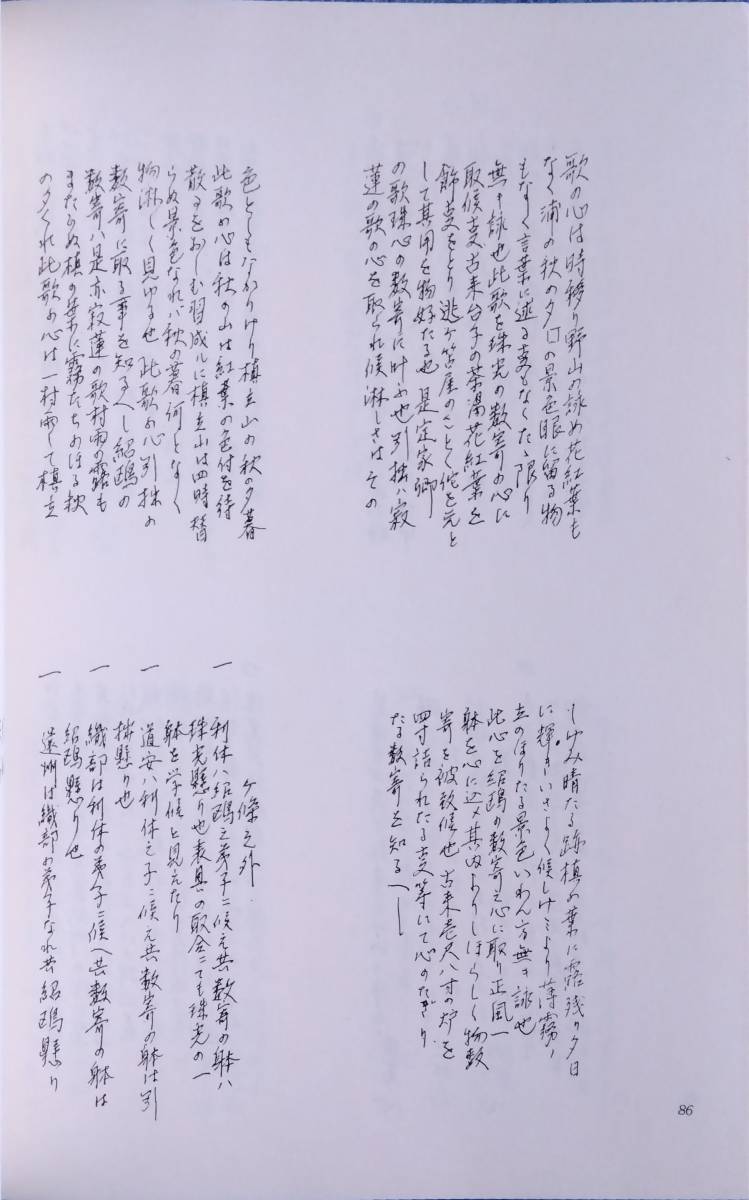 歌の心は時移り野山の詠め花紅葉も
なく浦の秋の夕□の景色眼に留る物
もなく言葉に述る支もなくたゝ限り
無キ詠也此歌を珠光の数寄の心に
取候支古来台子の茶湯花紅葉を
飾支をとり逃ケ笘屋のことく侘を元と
して其用を物好たる也是定家卿
の歌珠心の数寄に叶ふ也引拙ハ寂
蓮の歌の心を取られ候淋しさはその
色としもなかりけり槙立山の秋の夕暮
此歌の心は秋の山は紅葉の色付を待
散るをおしむ習成ルに槙立山は四時替
らぬ景色なれハ秋の暮何となく
物淋しく見ゆる也此歌の心引拙の
数寄に取る事を知るへし紹鴎の
数寄ハ是亦寂蓮の歌村雨の露も
またひぬ槙の葉に霧たちのほる秋
の夕くれ此歌の心は一村雨して槙立
しゆみ晴たる跡槙の葉に露残り夕日
に輝きいさよく候しけミより薄霧ノ
立のほりたる景色いわん方無キ詠也
此心を紹鴎の数寄之心に取り正風一
躰を心に込メ其内よりしほらしく物数
寄を被致候也古来壱尺八寸の炉を
四寸詰られたる支等にて心のたぎり
たる数寄を知るへし
ケ條之外
一 利休ハ紹鴎之弟子ニ候え共数寄の躰ハ
珠光懸り也表具の取合ニても珠光の一
躰を学候と見えたり
一 道安ハ利休之子ニ候え共数寄の躰は引
拙懸り也
一 織部は利休の弟子ニ候へ共数寄の躰は
紹鴎懸り也
一 遠州は織部の弟子なれ共紹鴎懸り
86